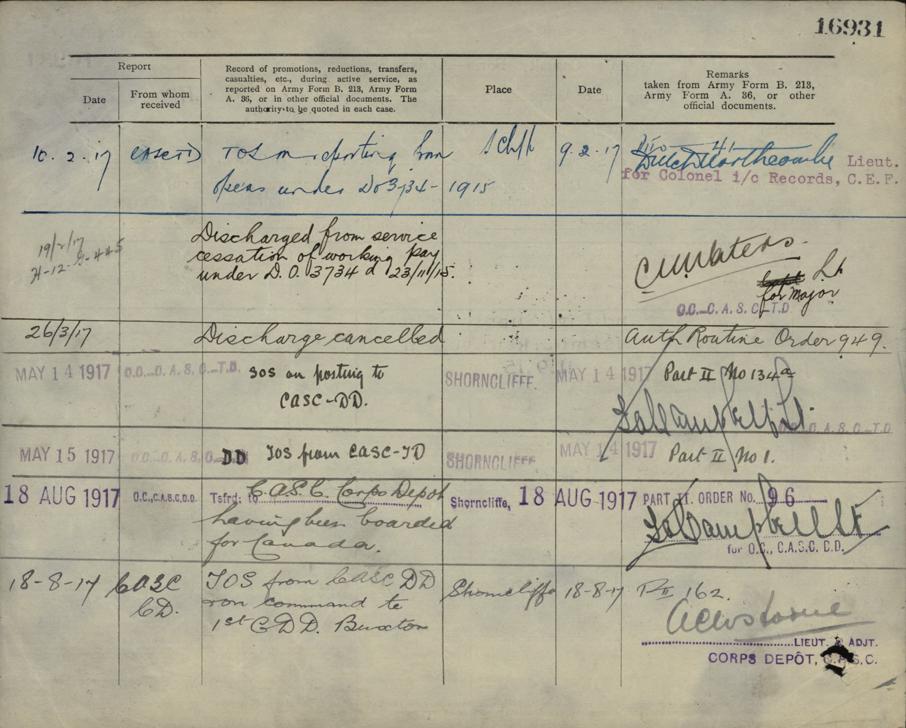 16931
Report
Date
From whom received
Record of promotions, reductions, transfers,
casualties, etc., during active service, as
reported on Army Form B. 213, Army Form
A. 36, or in other official documents. The
authority to be quoted in each case.
Place
Date
Remarks
taken from Army Form B. 213,
Army Form A. 36, or other
official documents.
10.2.17 CASCTD TOS on reporting from 9.2.17
under 1915
Lieut.
for Colonel i/c Records, C.E.F.
19/2/17
Discharged from service
cessation of working pay
under D.O. 3734 d 23/11/15.
Lt
for Major
O.C.-C.A.S.C.-T.D
26/3/17 Discharge cancelled Auth Routine Order 949.
MAY 14 1917 O.C.-C.A.S.C.-T.D. SOS on posting to SHORNCLIFFE. MAY 14 1917 Part II No 134a
CASC-DD.
C.A.S.C.-T.D
MAY 15 1917 DD TOS from CASC-TD SHORNCLIFFE MAY 14 1917 Part II No 1.
18 AUG 1917 O.C., C.A.S.C. D.D. Tsfrd: to C.A.S.C. Corps Depot Shorncliffe, 18 AUG 1917 PART II. ORDER No. 96
having been boarded
for Canada.
for O.C., C.A.S.C. D.D.
18-8-17 CASC CD. TOS from CASC DD Shorncliffe 18-8-17 Pt II 162.
on command to
1st C.D.D. Buxton
LIEUT. & ADJT.
CORPS DEPÔT, C.A.S.C.